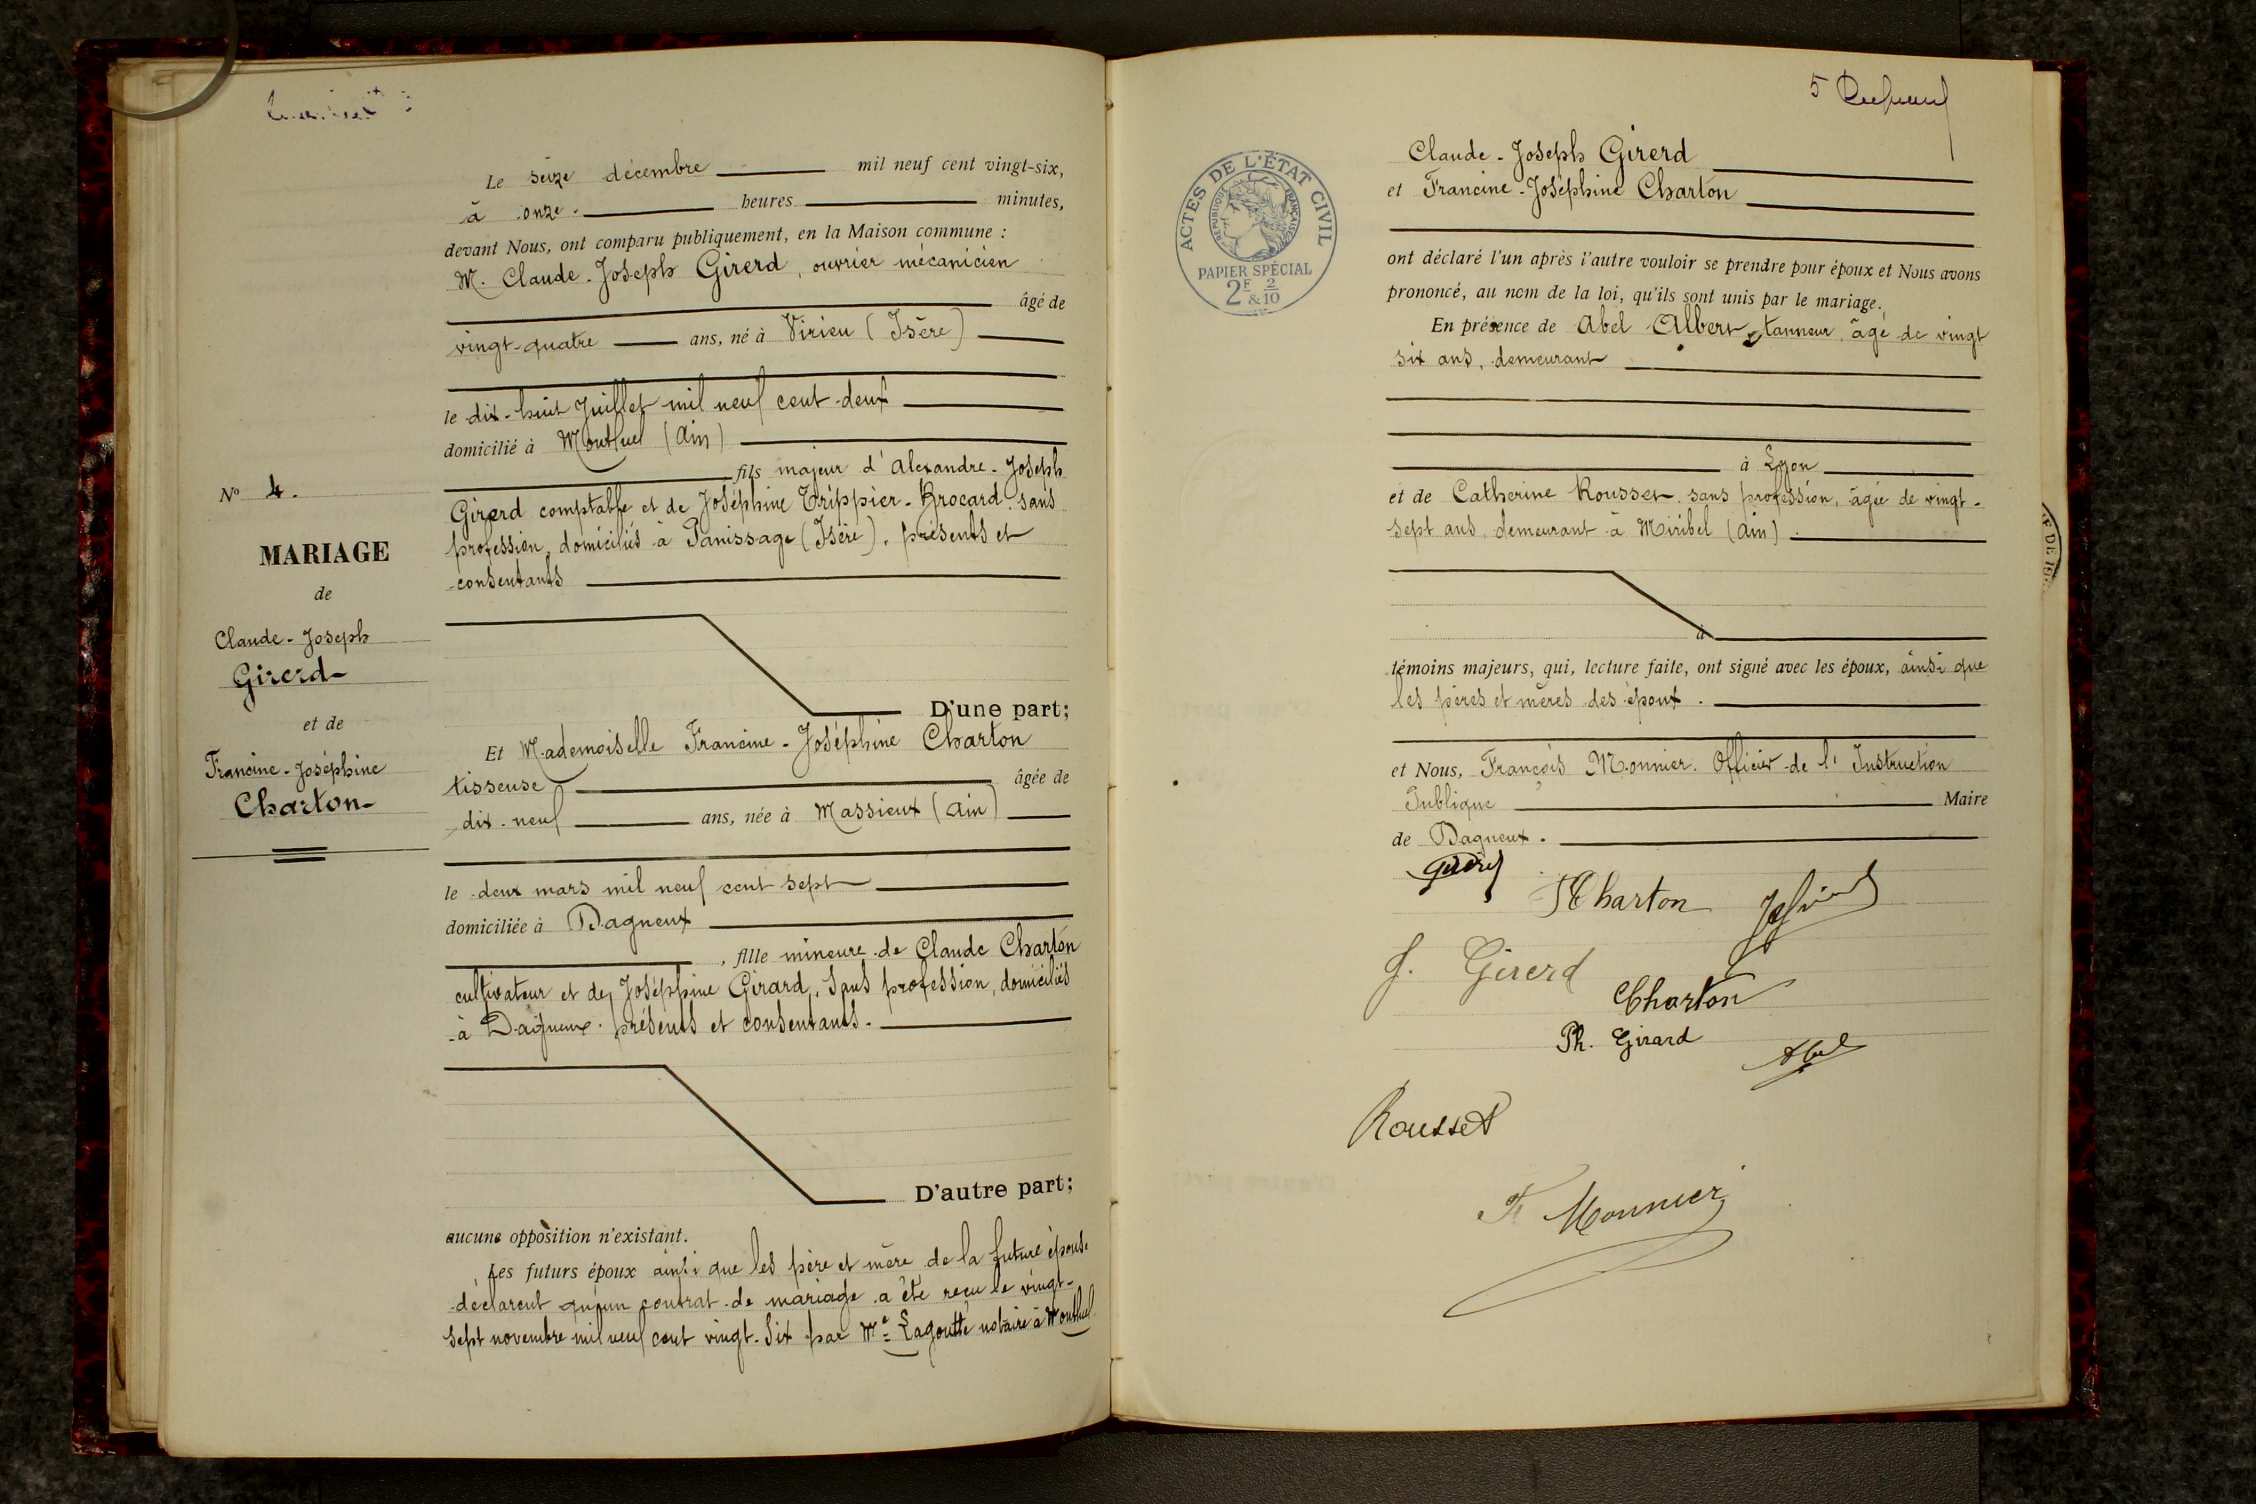 Le seize décembre mil neuf cent vingt-six,
à onze heures minutes,
devant Nous, ont comparu publiquement, en la Maison commune :
M. Claude-Joseph Girerd, ouvrier mécanicien
âgé de
vingt-quatre ans, né à Virieu (Isère)
le dix-huit Juillet mil neuf cent deux
domicilié à Montluel (Ain)
fils majeur d'Alexandre-Joseph
Girerd comptable et de Joséphine Trippier-Brocard, sans
profession, domiciliés à Panissage (Isère). présents et
consentants
D'une part;
Nº 4.
MARIAGE
de
Claude-Joseph
Girerd
et de
Francine-Joséphine
Charton
Et Mademoiselle Francine-Joséphine Charton
tisseuse âgée de
dix-neuf ans, née à Massieux (Ain)
le deux mars mil neuf cent sept
domiciliée à Dagneux
, fille mineure de Claude Charton
cultivateur et de Joséphine Girard, sans profession, domiciliés
à Dagneux. présents et consentants.
D'autre part;
aucune opposition n'existant.
Les futurs époux ainsi que les père et mère de la future épouse
déclarent qu'un contrat de mariage a été reçu le vingt-
sept novembre mil neuf cent vingt-six par Me Lagoutte notaire à Montluel
5
ACTES DE L'ÉTAT CIVIL
RÉPUBLIQUE FRANÇAISE
PAPIER SPÉCIAL
2F & 2/10
Claude-Joseph Girerd
et Francine-Joséphine Charton
ont déclaré l'un après l'autre vouloir se prendre pour époux et Nous avons
prononcé, au nom de la loi, qu'ils sont unis par le mariage.
En présence de Abel Albert, tanneur, âgé de vingt
six ans, demeurant
à Lyon
et de Catherine Rousset, sans profession, âgée de vingt-
sept ans, demeurant à Miribel (Ain).
à
témoins majeurs, qui, lecture faite, ont signé avec les époux, ainsi que
les pères et mères des époux.
et Nous, François Monnier. Officier de l'Instruction
Publique Maire
de Dagneux.
Girerd
Charton
J. Girerd
Charton
Ph. Girard
Abel
Rousset
Fs Monnier